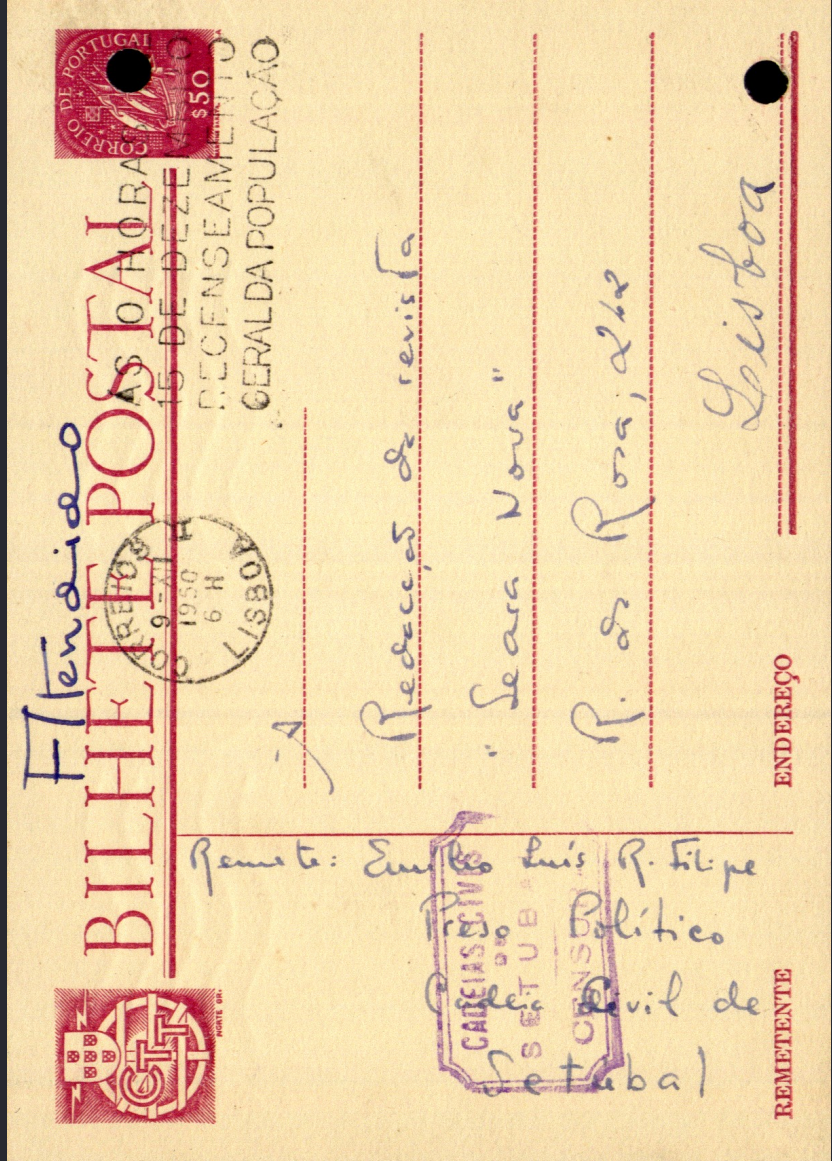 Atendido
BILHETE POSTAL
CORREIO DE PORTUGAL
$50
ÀS 0 HORAS
15 DE DEZEMBRO
RECENSEAMENTO
GERAL DA POPULAÇÃO
CORREIOS
9-XII
1950
6 H
LISBOA
À
Redacção da revista
"Seara Nova"
R. da Rosa, 242
Lisboa
ENDEREÇO
CTT
NORTE GR.
Remete: Emílio Luís R. Filipe
Preso Político
Cadeia Civil de
Setúbal
CADEIAS CIVIS
DE
SETUBAL
CENSURA
REMETENTE